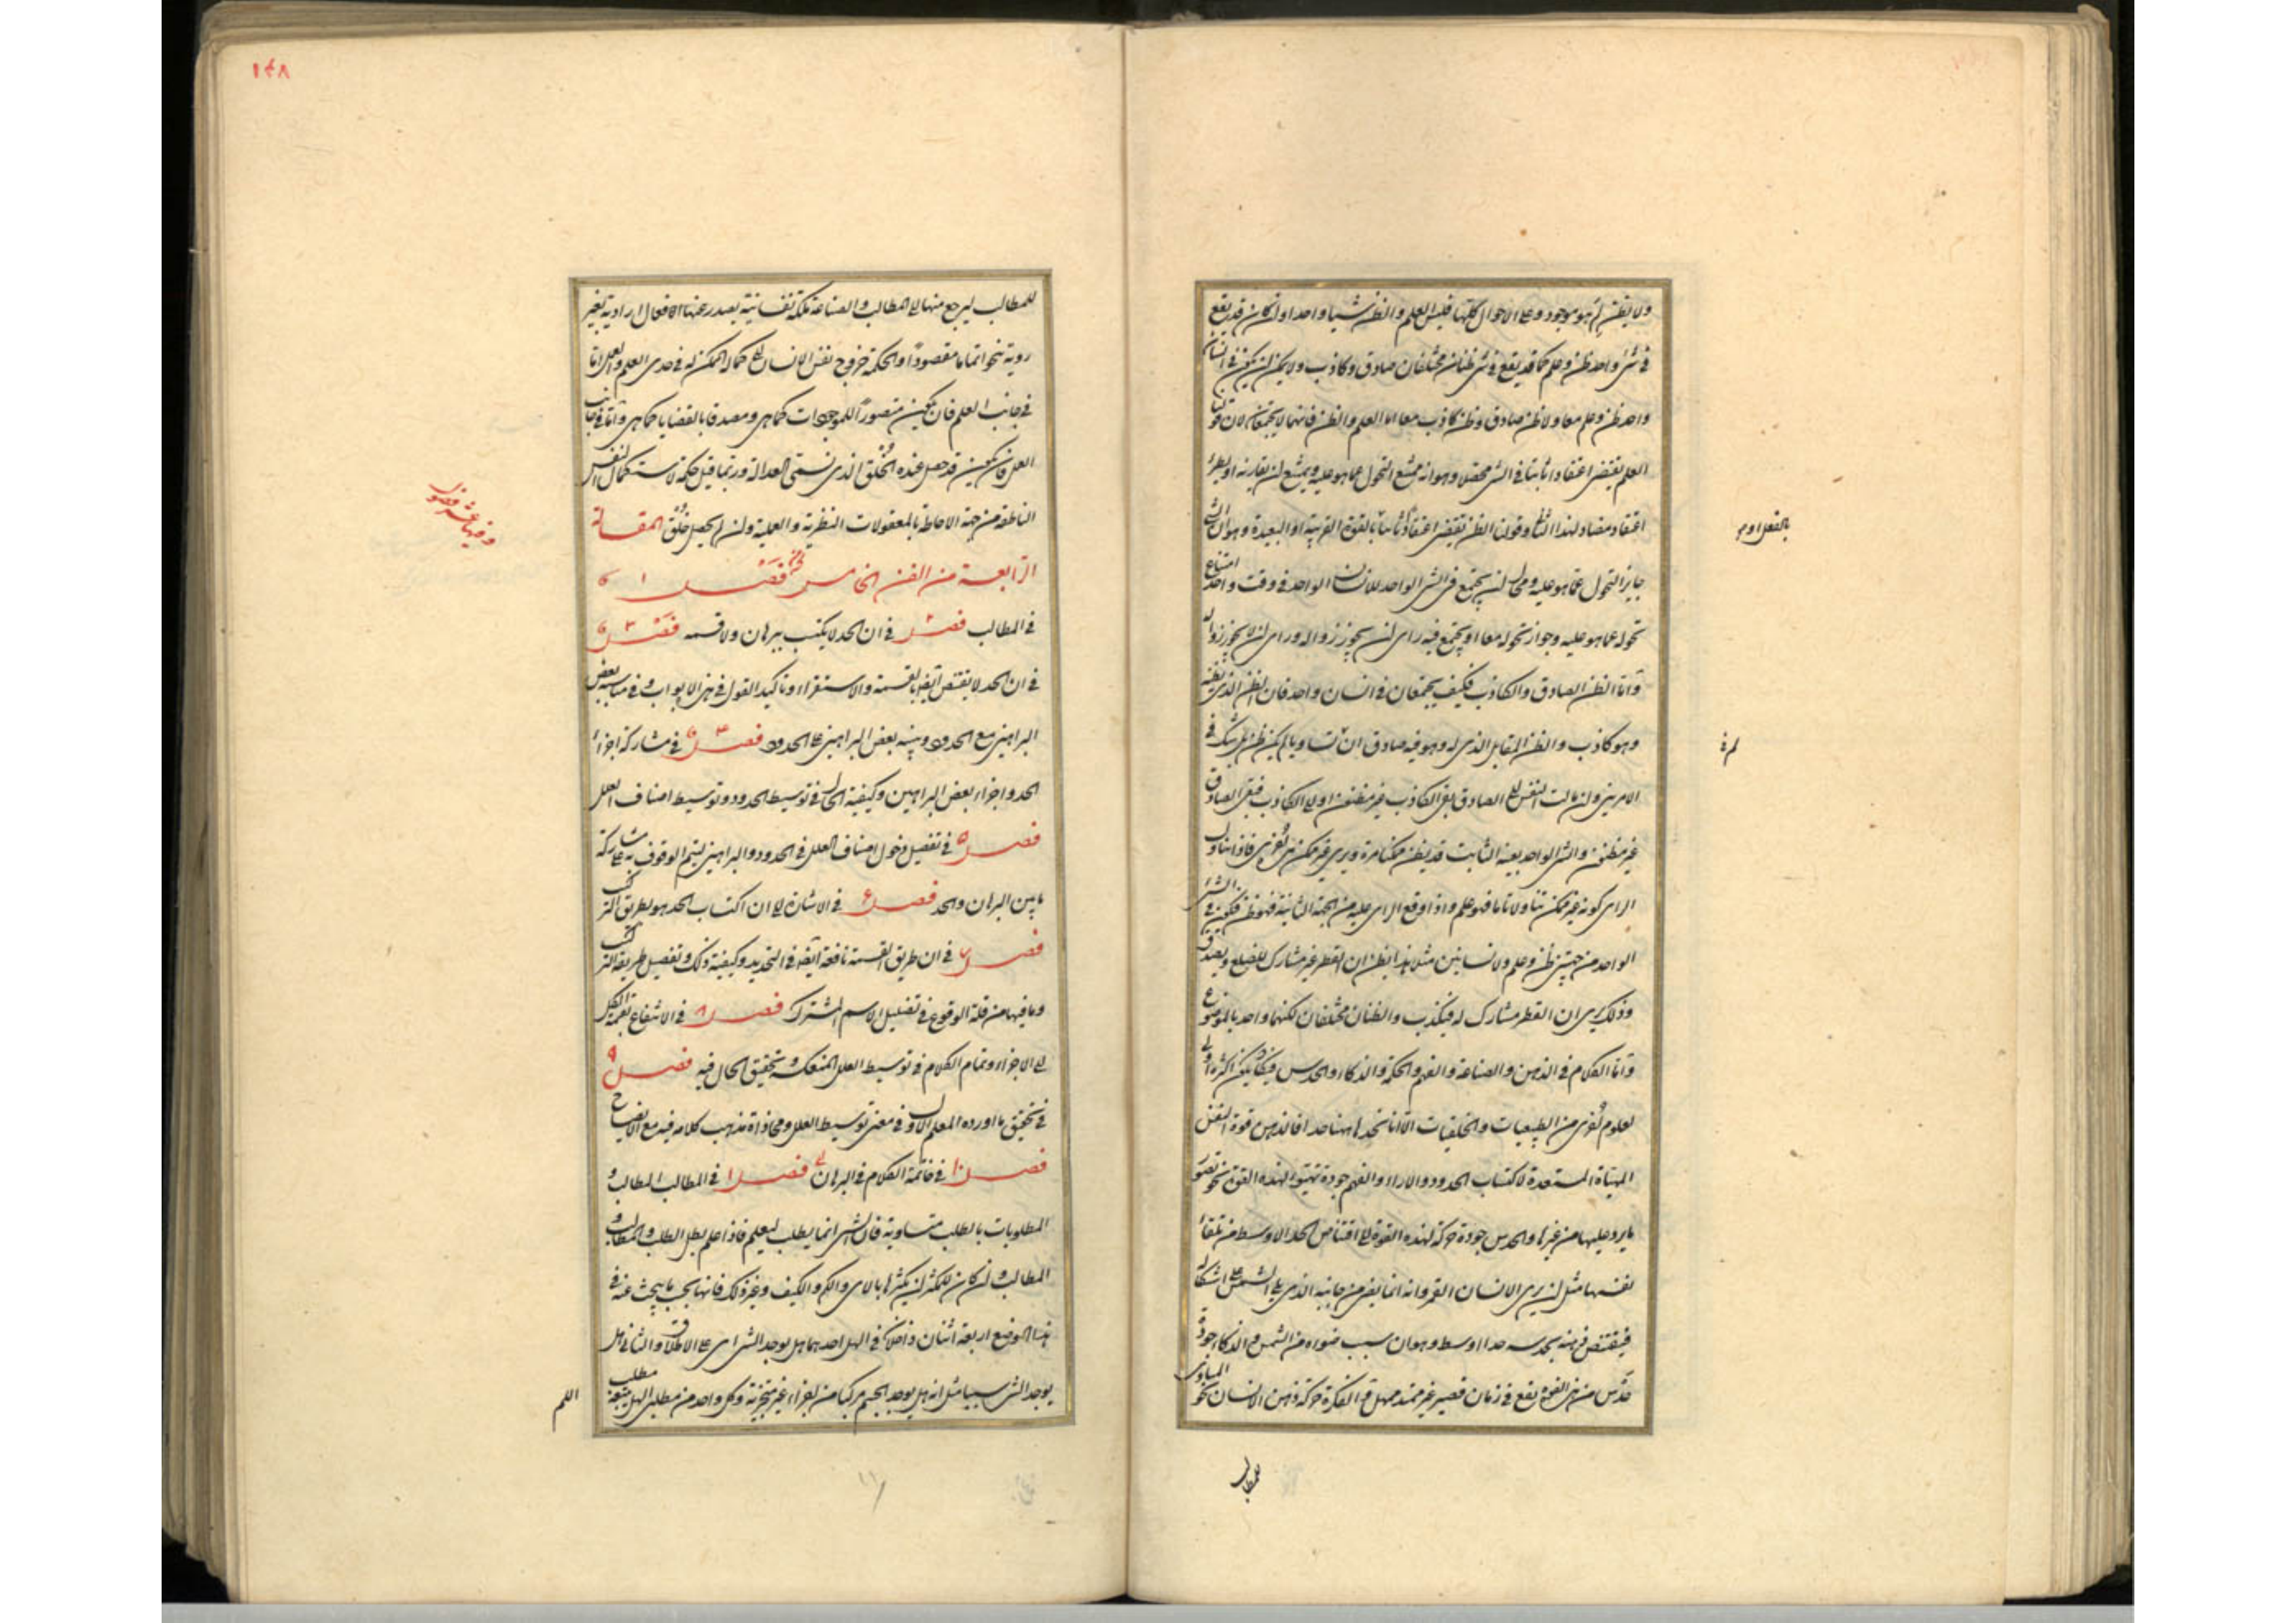 ولا يظن لم هو موجود وعلى الاحوال كلها فليس العلم والظن شيئا واحدا وان كان قد يقع
فى شئ واحد ظن وعلم كما قد يقع فى شئ ظنان مختلفان صادق وكاذب ولا يمكن ان يكون فى انسان
واحد ظن وعلم معا ولا ظن صادق وظن كاذب معا اما العلم والظن فانهما لا يجتمعان لان قولنا
العلم يقتضى اعتقادا ثابتا فى الشئ محصلا وهو انه ممتنع التحول عما هو عليه ويمتنع ان يقارنه او يطرأ
اعتقاد مضاد لهذا الثانى وقولنا الظن يقتضى اعتقادا ثانيا بالقوة القريبة او البعيدة وهو ان الشئ
بالفعل او م
جايز التحول عما هو عليه ومحال ان يجتمع فى الشئ الواحد للانسان الواحد فى وقت واحد امتناع
تحوله عما هو عليه وجواز تحوله معا او يجتمع فيه راى ان يجوز زواله وراى ان لا يجوز زواله
واما الظن الصادق والكاذب فكيف يجتمعان فى انسان واحد فان الظن الذى يظنه
وهو كاذب والظن المقابل الذى له وهو فيه صادق ان تساويا لم يكن ظن بل شك فى
الامرين وان مالت النفس الى الصادق بقى الكاذب غير مظنون او الى الكاذب فبقى الصادق
غير مظنون والشئ الواحد بعينه الثابت قد يظن ممكنا مرة ويرى غير ممكن من اخرى فاذا تناول
الراى كونه غير ممكن تناولا تاما فهو علم واذا وقع الراى عليه من الجهة الثانية فهو ظن فيكون فى الشئ
الواحد من جهتين ظن وعلم ولانسانين مثلا هذا يظن ان القطر غير مشارك للضلع ويصدق
وذلك يرى ان القطر مشارك له فيكذب والظنان مختلفان لكنهما واحد بالموضوع
واما الكلام فى الذهن والصناعة والفهم والحكمة والذكاء والحدس فيكاد يكون اكثره اولى
لعلوم اخرى من الطبيعيات والخلقيات الا انا نحدها ههنا حدا فالذهن قوة النفس
المهيأة المستعدة لاكتساب الحدود والاراء والفهم جودة تهيئو لهذه القوة نحو تصور
ما يرد عليها من غيرها والحدس جودة حركة لهذه القوة الى اقتناص الحد الاوسط من تلقاء
نفسها مثل ان يرى الانسان القمر وانه انما يضئ من جانبه الذى يلى الشمس على اشكاله
فيقتنص ذهنه بحدسه حدا اوسط وهو ان سبب ضوءه من الشمس والذكاء جودة
حدس من هذه القوة يقع فى زمان قصير غير ممتد مهل والفكرة حركة ذهن الانسان نحو المبادى
للمطالب
١٤٨
للمطالب ليرجع منها الى المطالب والصناعة ملكة نفسانية يصدر عنها الافعال ارادية بغير
روية تنحو اتماما مقصودا والحكمة خروج نفس الانسان الى كماله الممكن له فى حدى العلم والعمل اما
فى جانب العلم فان يكون متصورا للموجودات كما هى ومصدقا بالقضايا كما هى واما فى جانب
العمل فان يكون قد حصل عنده الخلق الذى نسمى العدالة وربما قيل حكمة لاستكمال النفس
الناطقة من جهة الاحاطة بالمعقولات النظرية والعملية وان لم يحصل خلق المقالة
وفيها عشرة فصول
الرابعة من الفن الخامس فصل ١
فى المطالب فصل ٢ فى ان الحد لا يكتسب ببرهان ولا قسمة فصل ٣
فى ان الحد لا يقتنص ايضا بالقسمة والاستقراء وتاكيد القول فى هذه الابواب وفى مناسبة بعض
البراهين مع الحدود وتنبيه بعض البراهين على الحدود فصل ٤ فى مشاركة اجزاء
الحد واجزاء بعض البراهين وكيفية الحال فى توسيط الحدود وتوسيط اصناف العلل
فصل ٥ فى تفصيل دخول اصناف العلل فى الحدود والبراهين ليتم الوقوف به على مشاركة
ما بين البرهان والحد فصل ٦ فى الاشارة الى ان اكتساب الحد هو بطريق التركيب
فصل ٧ فى ان طريق القسمة نافعة ايضا فى التحديد وكيفية ذلك وتفصيل طريقة التركيب
وما فيها من قلة الوقوع فى تضليل الاسم المشترك فصل ٨ فى الانتفاع بقسمة الكل
الى الاجزاء وتمام الكلام فى توسيط العلل المنعكسة وتحقيق الحال فيه فصل ٩
فى تحقيق ما اورده المعلم الاول فى معنى توسيط العلل ومحاذاة مذهب كلامه فيه مع الايضاح
فصل ١٠ فى خاتمة الكلام فى البرهان فصل ١ فى المطالب المطالب و
المطلوبات بالطلب متساوية فان الشئ انما يطلب ليعلم فاذا علم بطل الطلب والمطالب و
المطالب وان كان للمكثر ان يكثرها بالاى والكم والكيف وغير ذلك فانها بحسب ما يبحث عنه فى
هذا الموضع اربعة اثنان داخلان فى الهل احدهما هل يوجد الشئ اى على الاطلاق والثانى هل
يوجد الشئ شيئا مثل انه هل يوجد الجسم مركبا من اجزاء غير متجزية وكل واحد من مطلبى الهل يتبعه مطلب
اللم